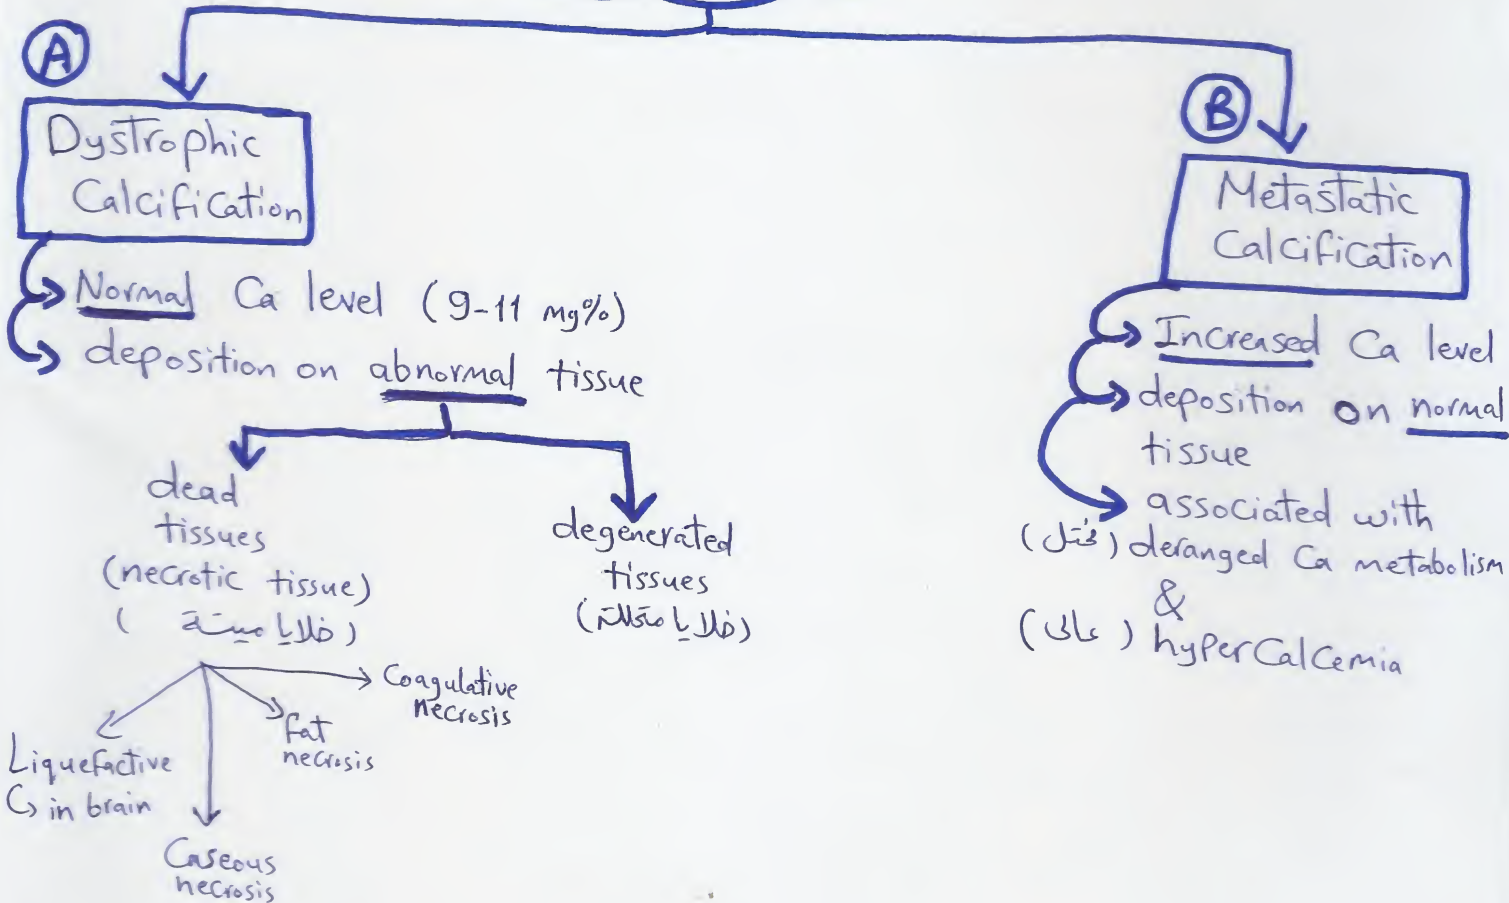 A
Dystrophic
Calcification
Normal Ca level (9-11 mg%)
deposition on abnormal tissue
dead
tissues
(necrotic tissue)
(خلايا ميتة)
degenerated
tissues
(خلايا متحللة)
Coagulative
necrosis
fat
necrosis
Liquefactive
in brain
Caseous
necrosis
B
Metastatic
Calcification
Increased Ca level
deposition on normal
tissue
associated with
(مختل) deranged Ca metabolism
&
(عالى) hyperCalcemia